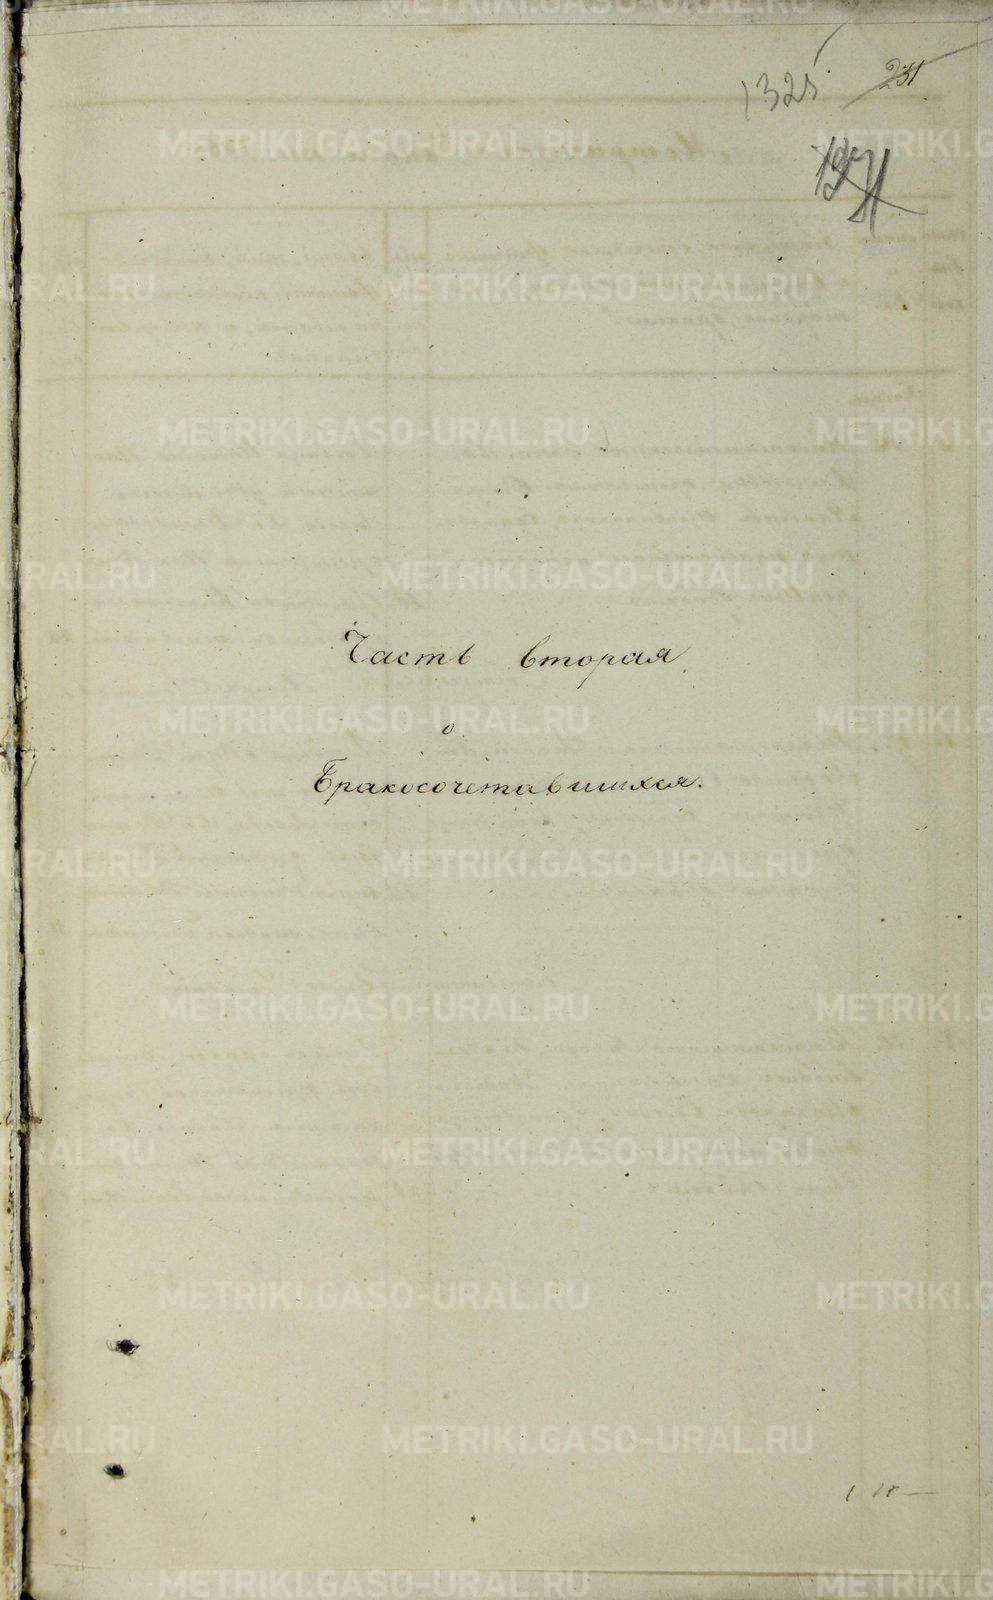 1325
231
Часть вторая
о
Бракосочетавшихся.
METRIKI.GASO-URAL.RU